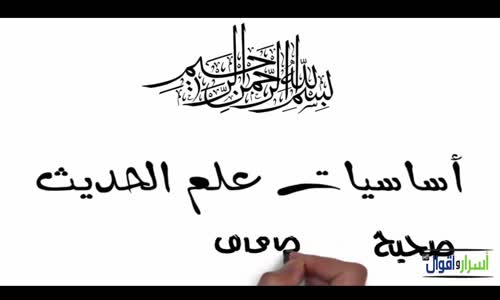 بسم الله الرحمن الرحيم
أساسيات علم الحديث
صحيح
أسرار و أقوال